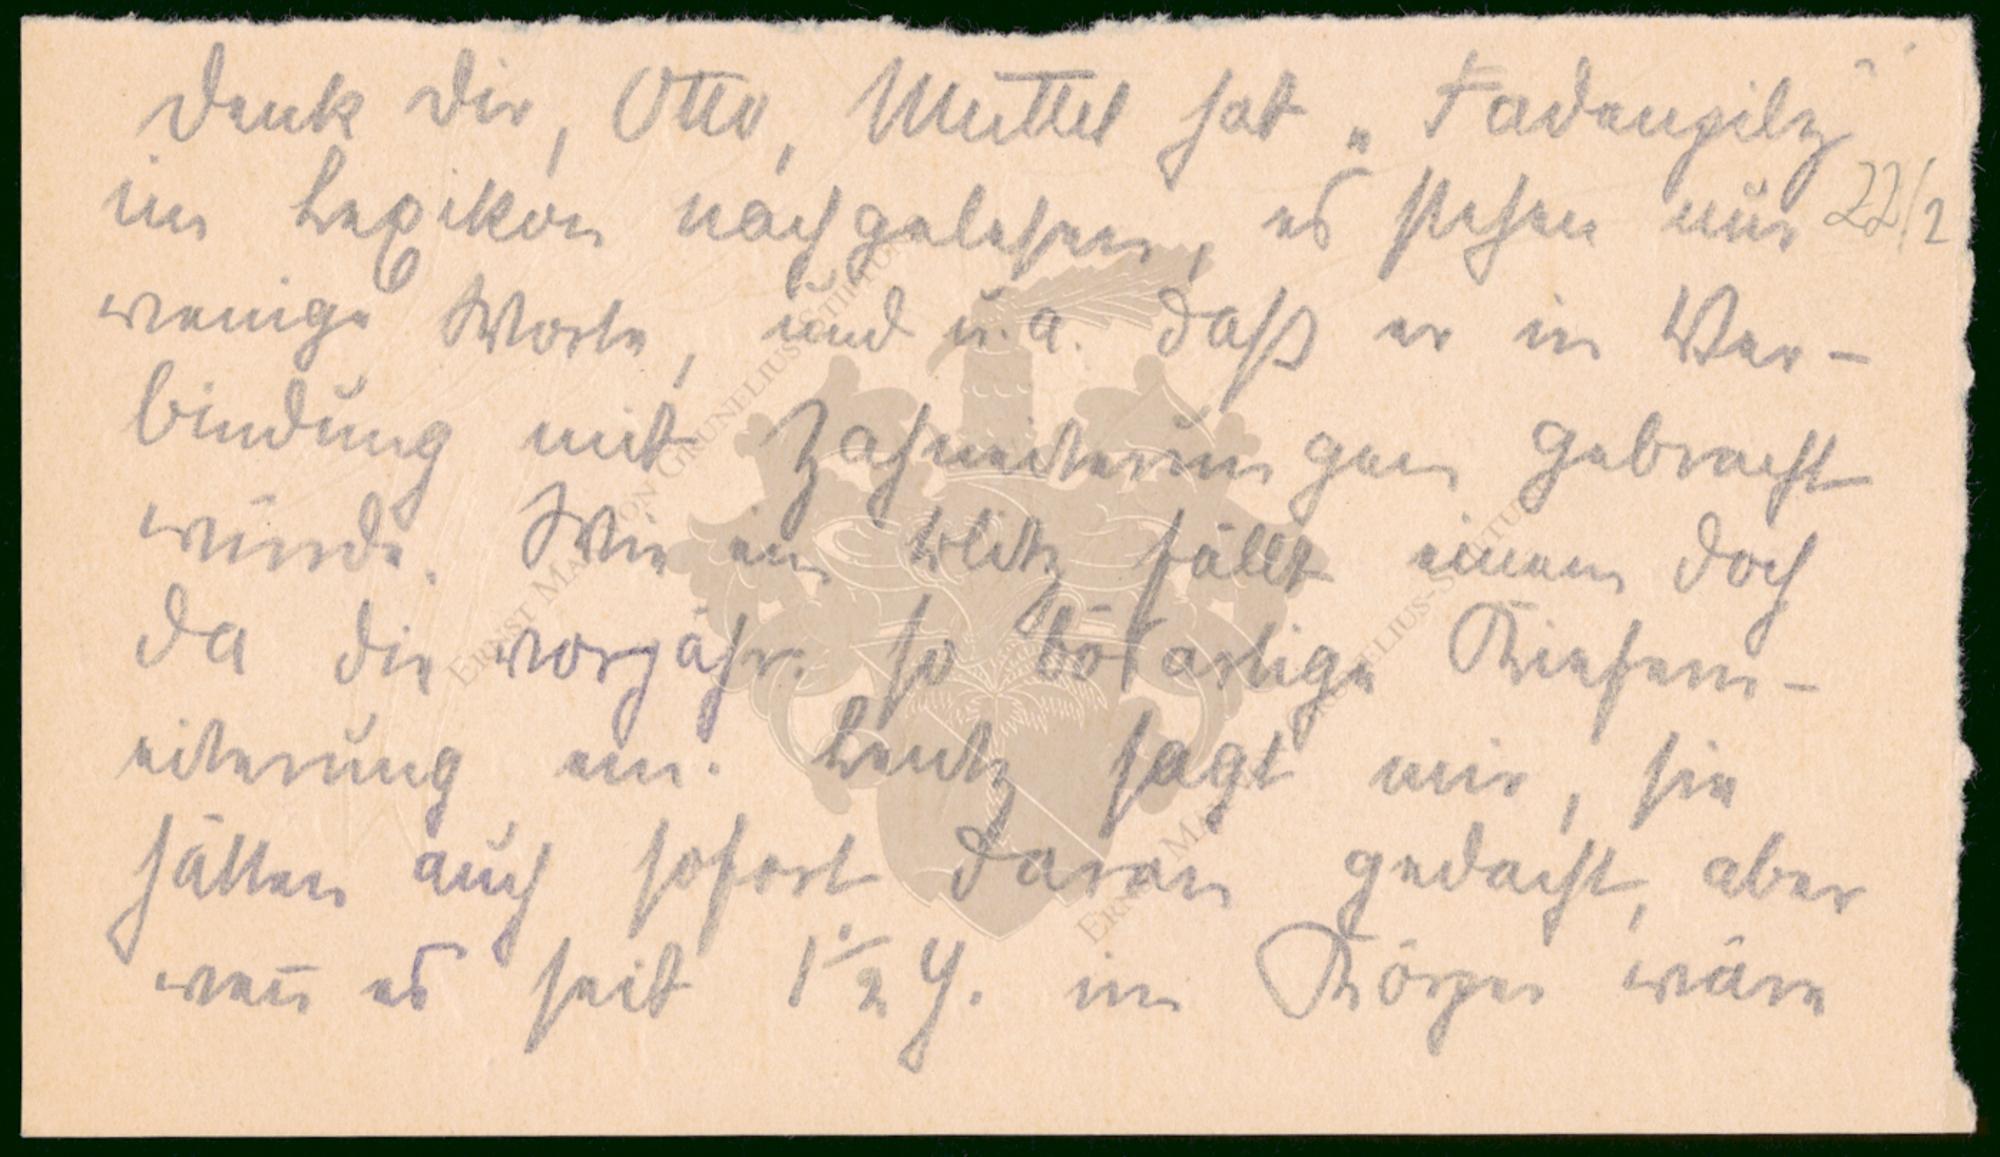 Denk Dir, Otto, Muttel hat „Fadenpilz"
im Lexikon nachgelesen, es stehen nur 22/2
wenige Worte, und u. a. daß er in Ver-
bindung mit Zahneiterungen gebracht
würde. Wie ein Blitz fällt einem doch
da die vorjähr. so bösartige Kiefern-
eiterung ein. Lentz sagt mir, sie
hätten auch sofort daran gedacht, aber
wen̅ es seit 1½ J. im Körper wäre
ERNST MAX VON GRUNELIUS-STIFTUNG
ERNST MAX VON GRUNELIUS-STIFTUNG